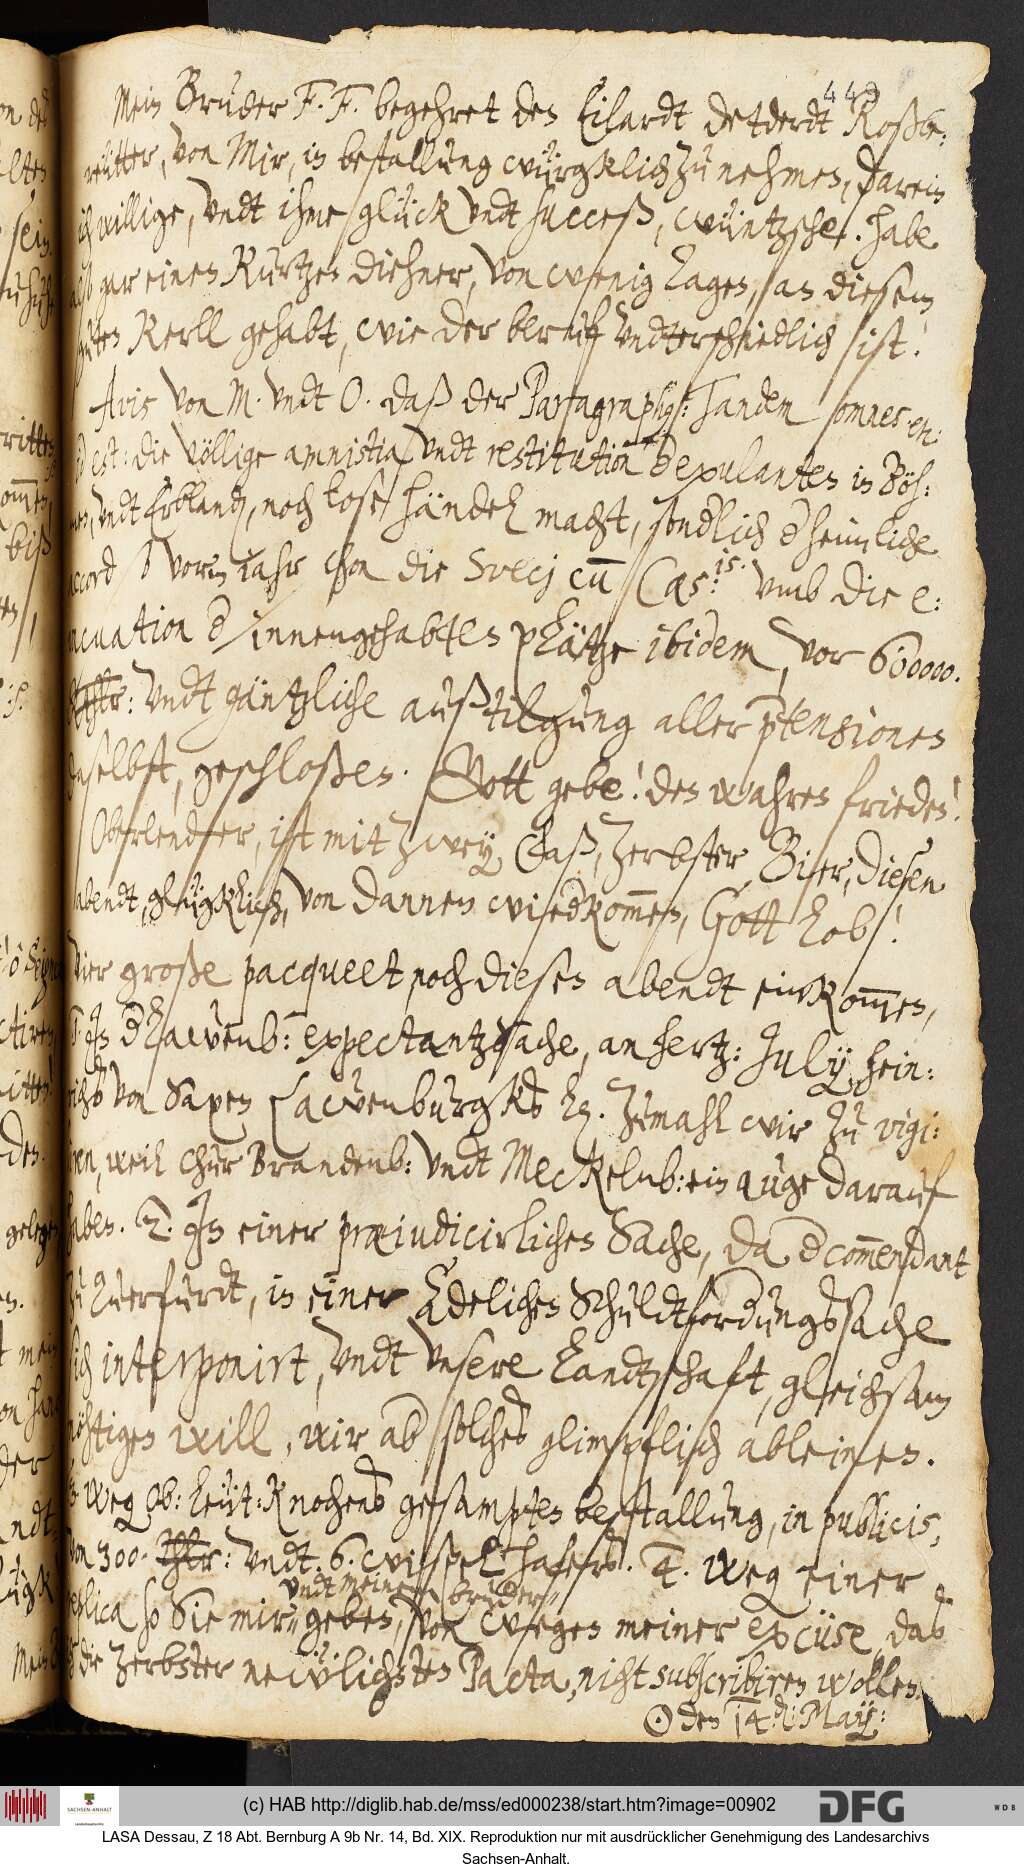 443
Mein Bruder F. F. begehret den Eilardt detderdt Roßbe:
reütter, von Mir, in bestallung würgklich zu nehmen, darein
ich willige, vndt ihme glück vndt success, wüntzsche. habe
also gar einen Kurtzen diehner, von wenig tagen, an diesem
guten Kerll gehabt, wie der beruff vndterschiedlich ist.
Avis von M. vndt O. daß der Paragraphus: Tandem omnes etc:
id est: die völlige amnistia vndt restitution d exulanten in Böh:
men, vndt Erbland, noch lose händel macht, sondlich d heimliche
accord so vorm Jahr schon die Sveci cum Caes:is. vmb die e:
vacuation d innengehabten plätze ibidem, vor 600000.
Thlr: vndt gäntzliche außtilgung aller ptensionen
daselbst, geschloßen. Gott gebe! den wahren frieden!
Oberlender, ist mit zwey Faß, Zerbster Bier, diesen
abendt, glügklich, von dannen wiedkommen, Gott lob!
Vier große pacqueet noch diesen abendt einkommen,
1. In d Lawenb: expectantzsache, an hertz: July hein:
richs von Saxen Lawenburgk Ld. zumahl wir zu vigi:
liren, weil Chur Brandenb: vndt Meckelnb: ein auge darauf
haben. 2. In einer præiudicirlichen Sache, da d commendant
zu Querfurdt, in einer Adelichen Schuldtfordungssache
sich interponirt, vndt vnsere Landtschaft, gleichsam
nöhtigen will, wir ab solches glimpflich ableinen.
3. Weg Ob: Leüt: Knochens gesampten bestallung, in publicis,
von 300. Thlr: vndt 6. wispel hafers. 4. Weg einer
replica so Sie mir, vndt meinem bruder, geben, von wegen meiner excüse, das
ich die Zerbster newlichsten Pacta, nicht subscribiren wollen.
☉ den 14. d: May:
(c) HAB http://diglib.hab.de/mss/ed000238/start.htm?image=00902
SACHSEN-ANHALT
DFG
WDB
LASA Dessau, Z 18 Abt. Bernburg A 9b Nr. 14, Bd. XIX. Reproduktion nur mit ausdrücklicher Genehmigung des Landesarchivs
Sachsen-Anhalt.